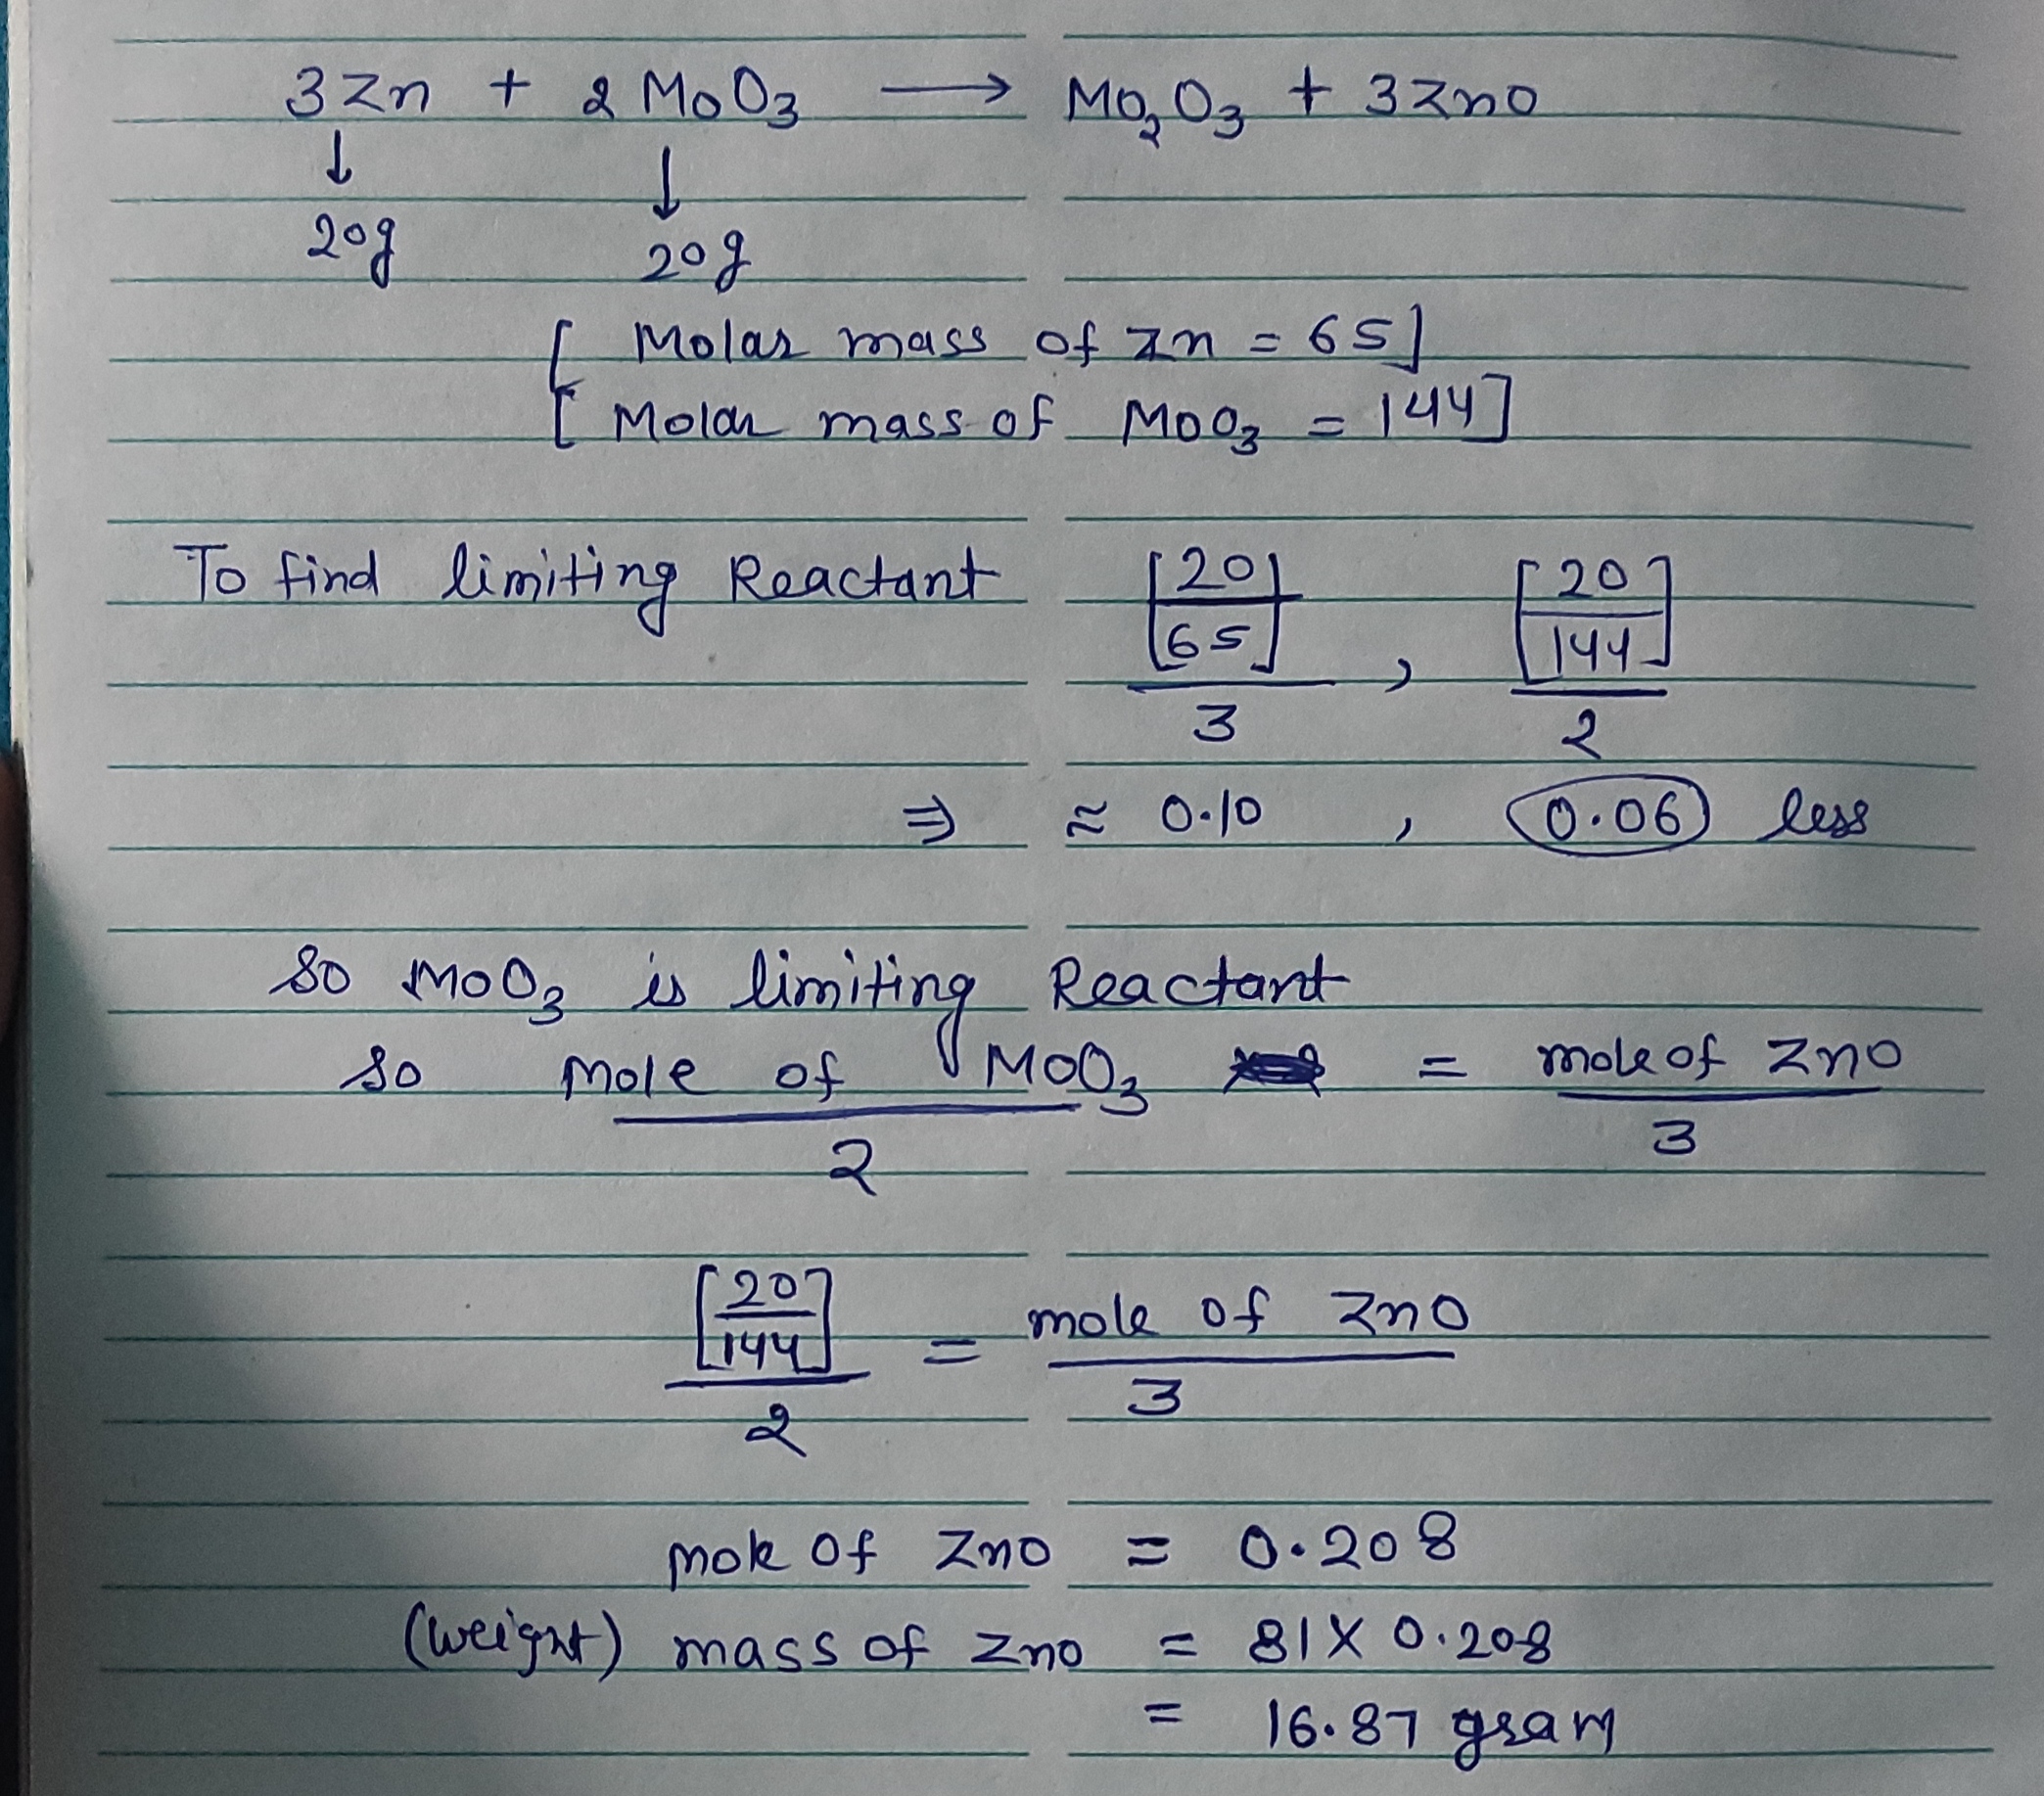 3Zn + 2MoO₃ ⟶ Mo₂O₃ + 3ZnO
↓ ↓
20g 20g
[Molar mass of Zn = 65]
[Molar mass of MoO₃ = 144]
To find limiting Reactant [20/65]/3 , [20/144]/2
⇒ ≈ 0.10 , 0.06 less
So MoO₃ is limiting Reactant
So mole of MoO₃/2 = mole of ZnO/3
[20/144]/2 = mole of ZnO/3
mole of ZnO = 0.208
(weight) mass of ZnO = 81 X 0.208
= 16.87 gram